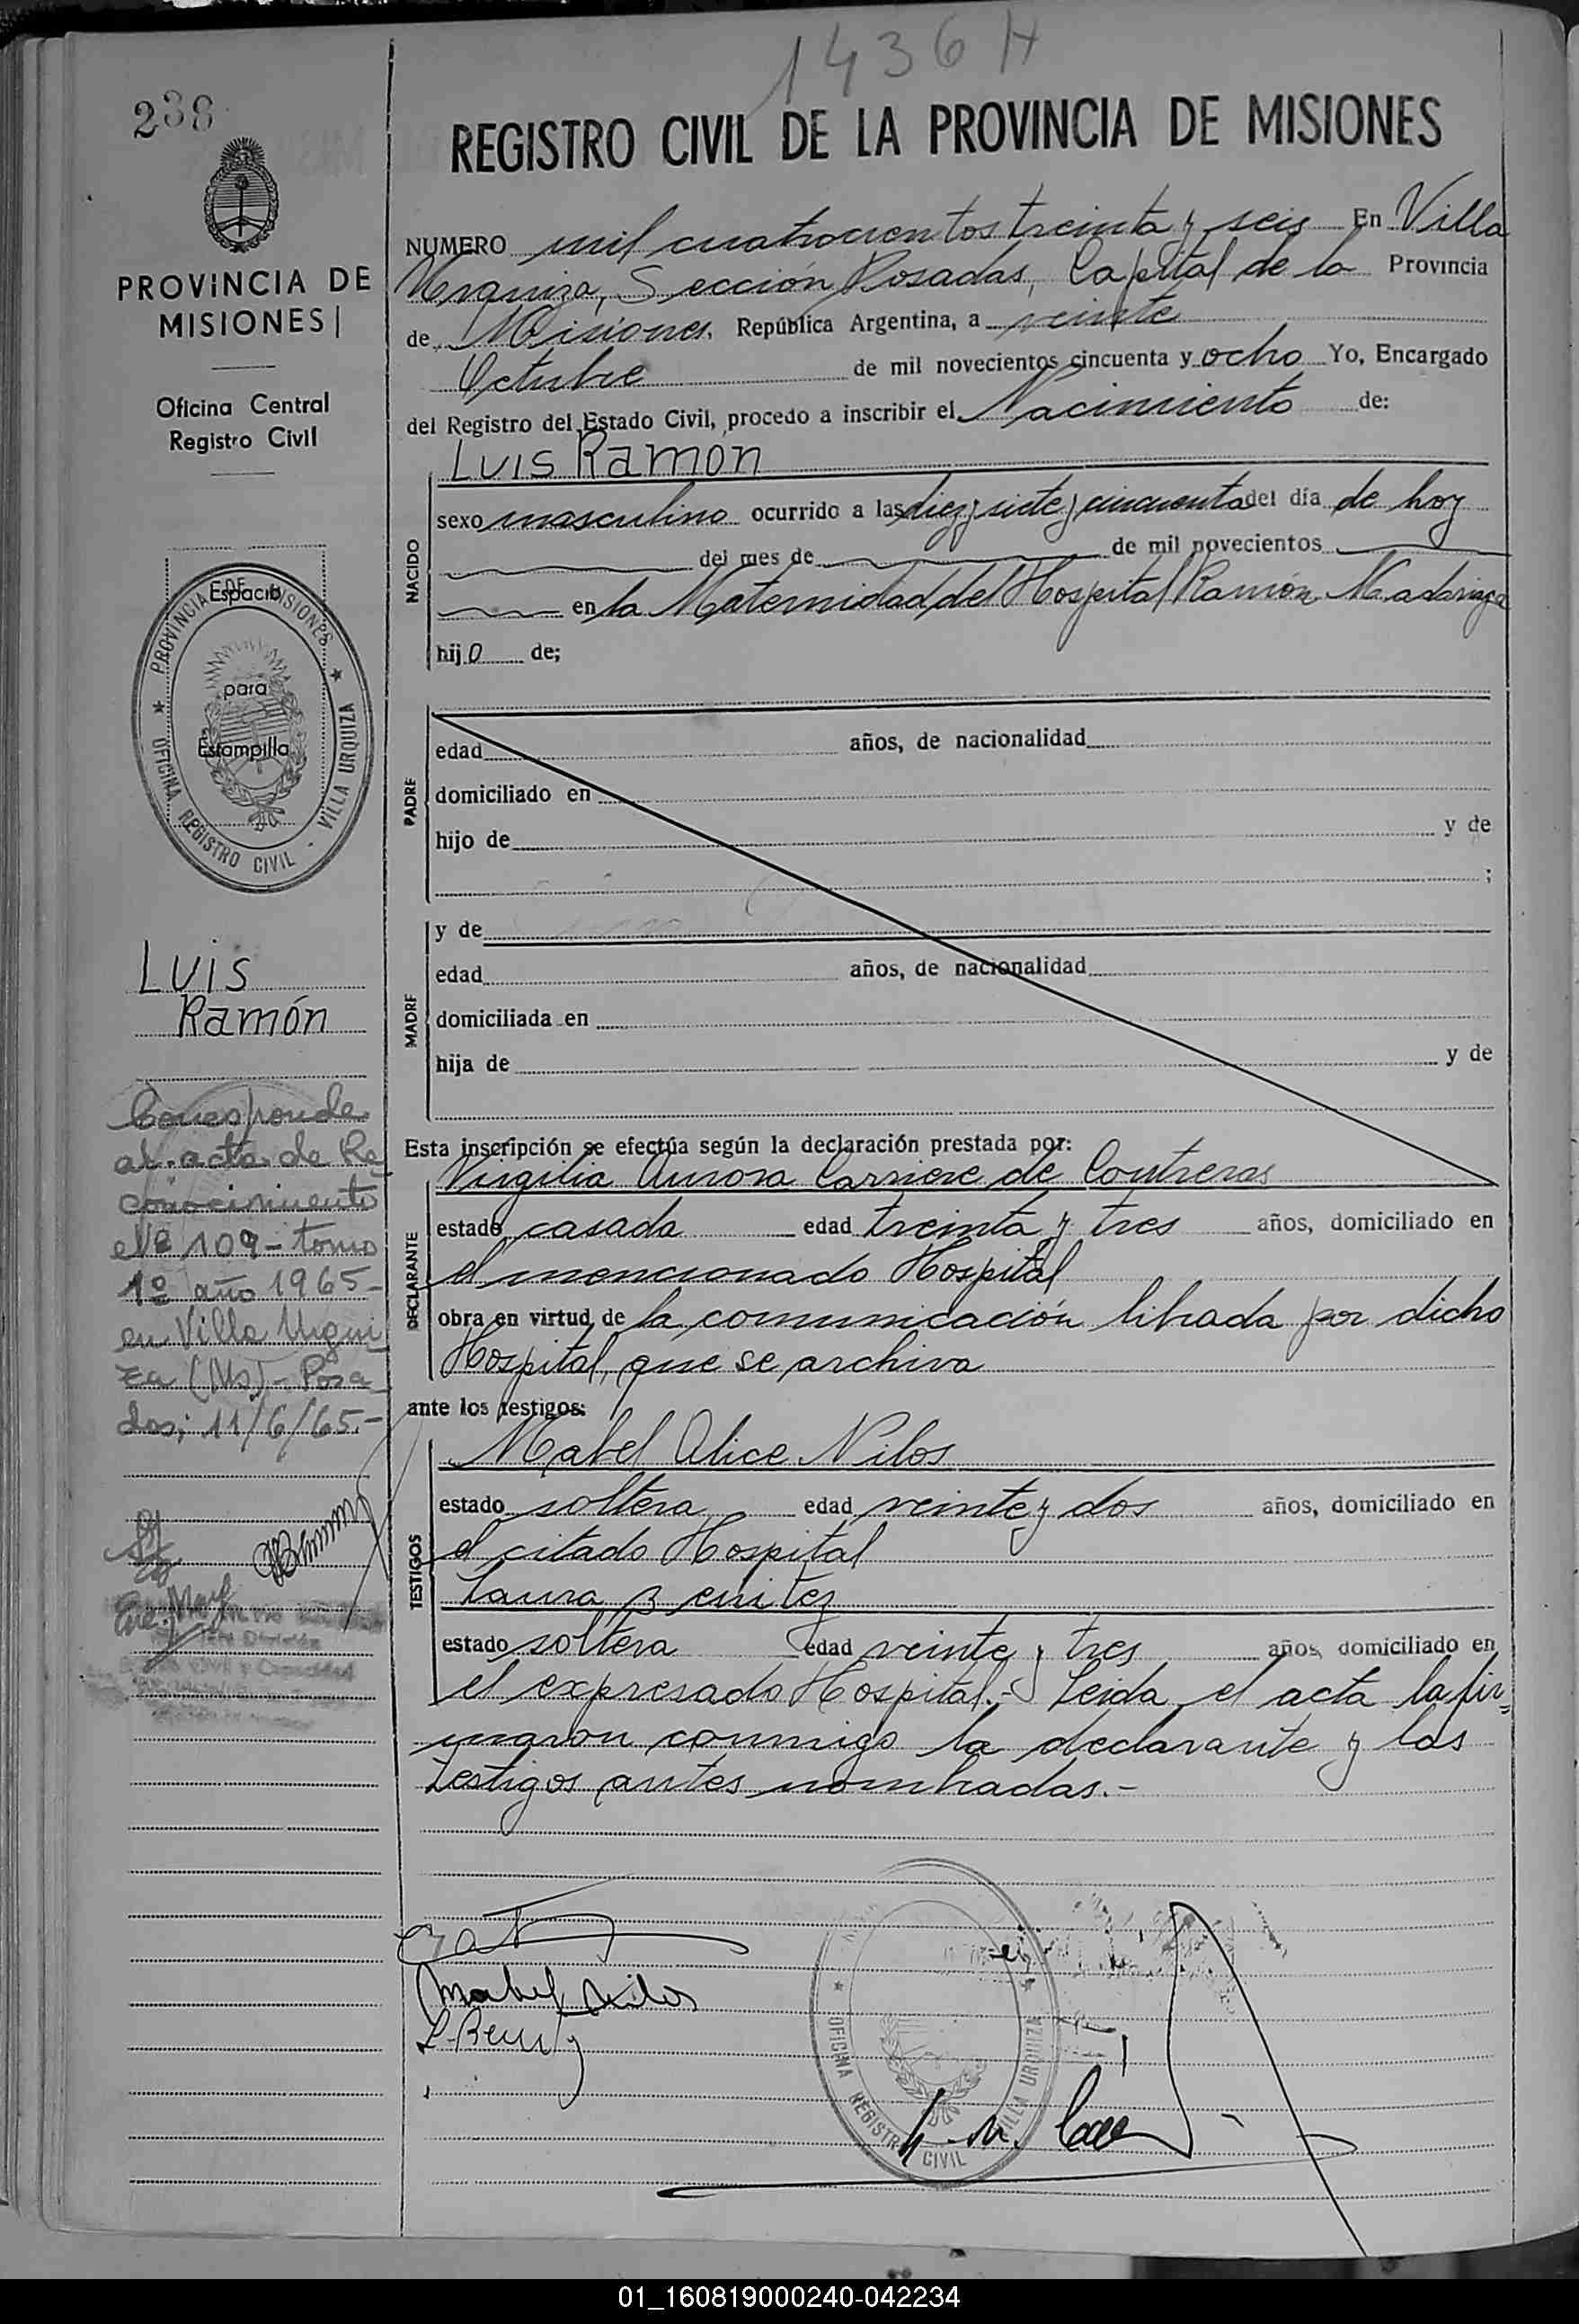 1436 H
238
REGISTRO CIVIL DE LA PROVINCIA DE MISIONES
PROVINCIA DE
MISIONES
Oficina Central
Registro Civil
Espacio
para
Estampilla
PROVINCIA DE MISIONES
OFICINA REGISTRO CIVIL - VILLA URQUIZA
Luis
Ramón
Corresponde
al acta de Re
conocimiento
Nº 109 - tomo
1º año 1965 -
en Villa Urqui
za (Ms) - Posa
das; 11/6/65.-
NUMERO mil cuatrocientos treinta y seis En Villa
Urquiza, Sección Posadas, Capital de la Provincia
de Misiones. República Argentina, a veinte
Octubre de mil novecientos cincuenta y ocho Yo, Encargado
del Registro del Estado Civil, procedo a inscribir el Nacimiento de:
Luis Ramón
NACIDO
sexo masculino ocurrido a las diez y siete y cincuenta del día de hoy
del mes de de mil novecientos
en la Maternidad del Hospital Ramón Madariaga
hijo de;
PADRE
edad años, de nacionalidad
domiciliado en
hijo de y de
;
MADRE
y de
edad años, de nacionalidad
domiciliada en
hija de y de
Esta inscripción se efectúa según la declaración prestada por:
DECLARANTE
Virgilia Aurora Carriere de Contreras
estado casada edad treinta y tres años, domiciliado en
el mencionado Hospital
obra en virtud de la comunicación librada por dicho
Hospital, que se archiva
ante los testigos:
TESTIGOS
Mabel Alice Nilos
estado soltera edad veinte y dos años, domiciliado en
el citado Hospital
Laura Benitez
estado soltera edad veinte y tres años, domiciliado en
el expresado Hospital.- Leida el acta la fir=
maron conmigo la declarante y las
testigos antes nombradas.-
Mabel Nilos
L. Benitez
OFICINA REGISTRO CIVIL VILLA URQUIZA
01_160819000240-042234